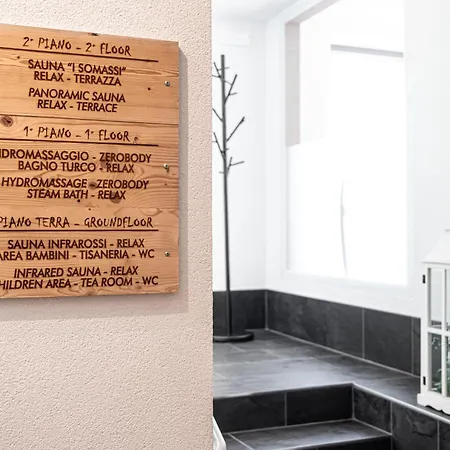 2° PIANO - 2° FLOOR
SAUNA "I SOMASSI"
RELAX - TERRAZZA
PANORAMIC SAUNA
RELAX - TERRACE
1° PIANO - 1° FLOOR
IDROMASSAGGIO - ZEROBODY
BAGNO TURCO - RELAX
HYDROMASSAGE - ZEROBODY
STEAM BATH - RELAX
PIANO TERRA - GROUNDFLOOR
SAUNA INFRAROSSI - RELAX
AREA BAMBINI - TISANERIA - WC
INFRARED SAUNA - RELAX
CHILDREN AREA - TEA ROOM - WC